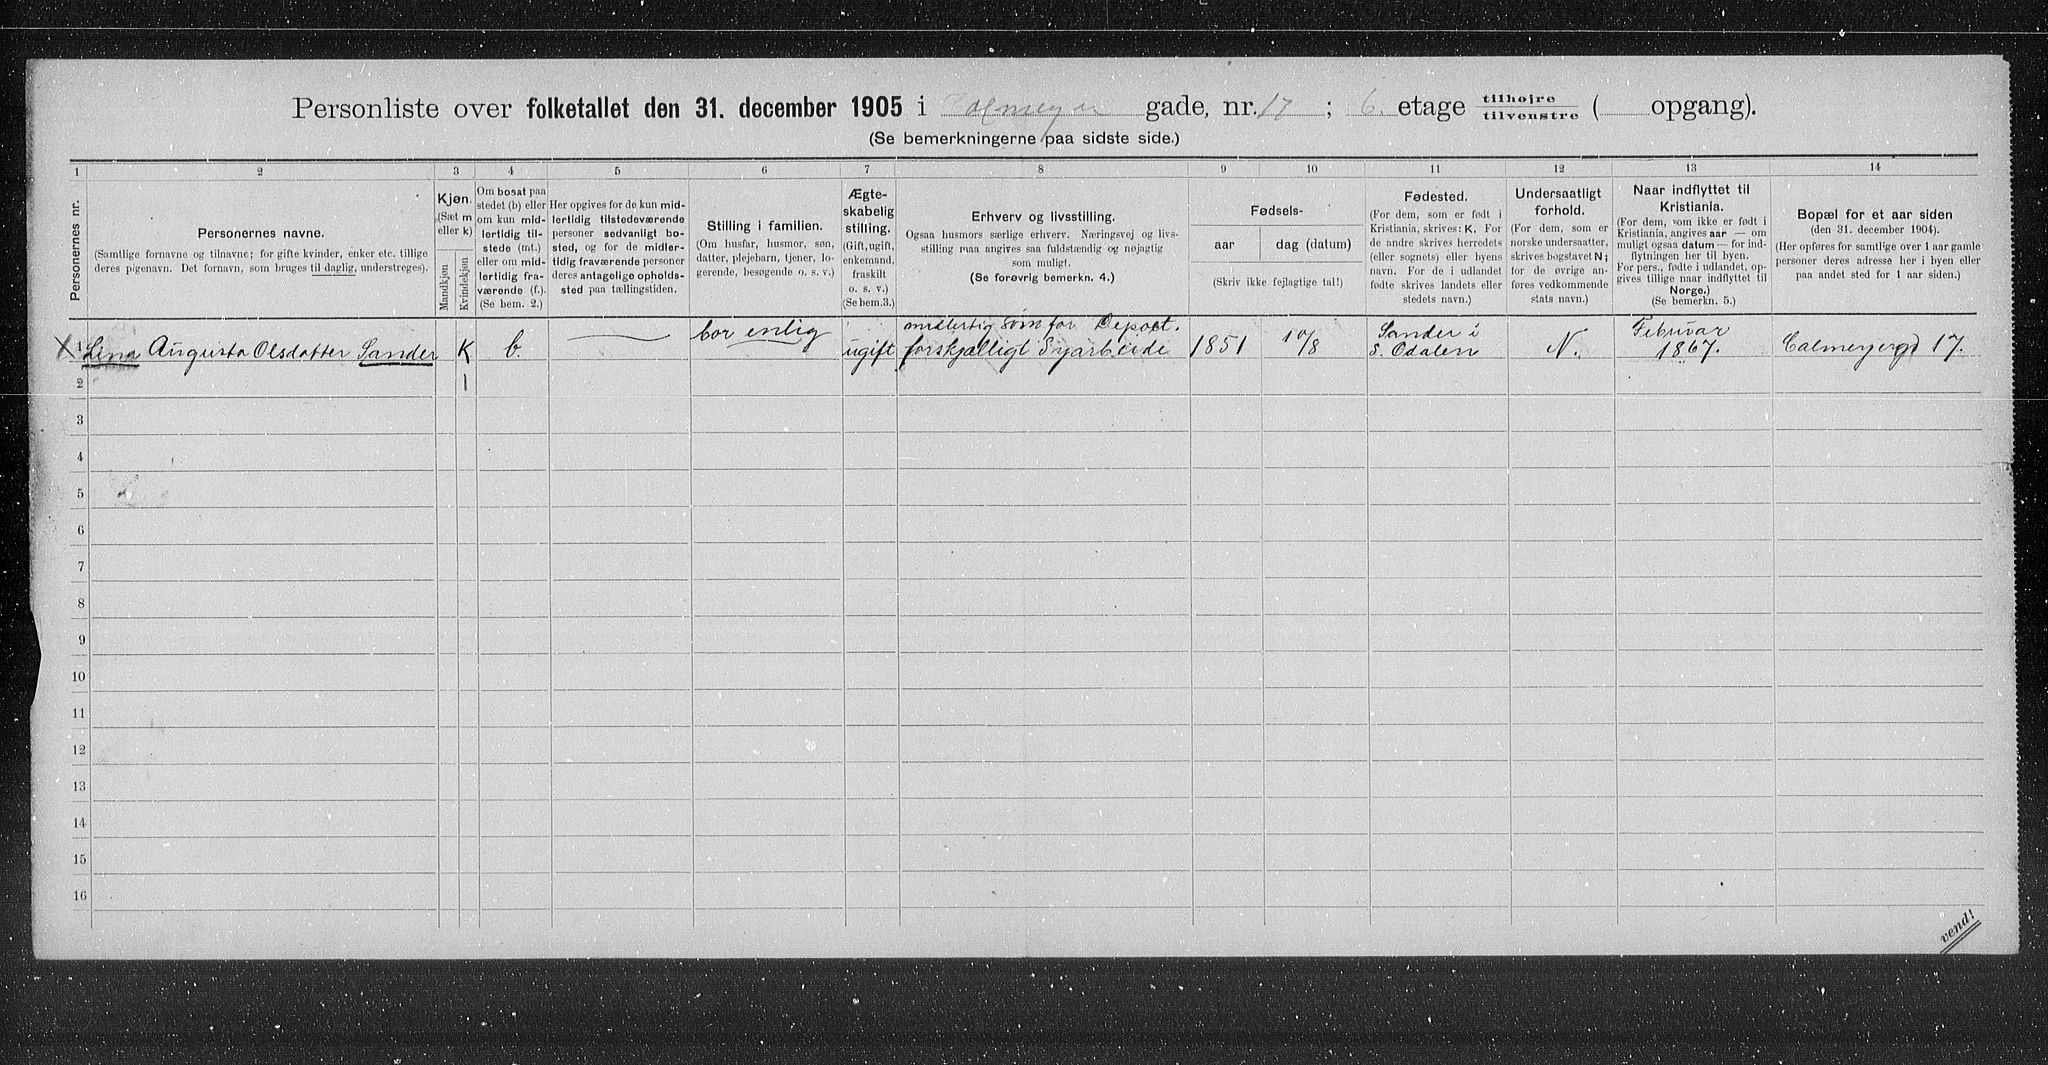 Personliste over folketallet den 31. december 1905 i Calmeyer gade, nr. 17 ; 6. etage tilhøjre tilvenstre ( opgang).
(Se bemerkningerne paa sidste side.)
1 2 3 4 5 6 7 8 9 10 11 12 13 14
Personernes nr.
Personernes navne.
(Samtlige fornavne og tilnavne; for gifte kvinder, enker etc. tillige
deres pigenavn. Det fornavn, som bruges til daglig, understreges).
Kjøn.
(Sæt m
eller k)
Mandkjøn
Kvindekjøn
Om bosat paa
stedet (b) eller
om kun mid-
lertidig til-
stede (mt.)
eller om mid-
lertidig fra-
værende (f.).
(Se bem. 2.)
Her opgives for de kun mid-
lertidig tilstedeværende
personer sedvanligt bo-
sted, og for de midler-
tidig fraværende personer
deres antagelige opholds-
sted paa tællingstiden.
Stilling i familien.
(Om husfar, husmor, søn,
datter, plejebarn, tjener, lo-
gerende, besøgende o. s. v.)
Ægte-
skabelig
stilling.
(Gift, ugift,
enkemand,
fraskilt
o. s. v.)
(Se bem.3.)
Erhverv og livsstilling.
Ogsaa husmors særlige erhverv. Næringsvej og livs-
stilling maa angives saa fuldstændig og nøjagtig
som muligt.
(Se forøvrig bemerkn. 4.)
Fødsels-
aar
dag (datum)
(Skriv ikke fejlagtige tal!)
Fødested.
(For dem, som er født i
Kristiania, skrives: K. For
de andre skrives herredets
(eller sognets) eller byens
navn. For de i udlandet
fødte skrives landets eller
stedets navn.)
Undersaatligt
forhold.
(For dem, som er
norske undersaatter,
skrives bogstavet N;
for de øvrige an-
føres vedkommende
stats navn.)
Naar indflyttet til
Kristiania.
(For dem, som ikke er født i
Kristiania, angives aar — om
muligt ogsaa datum — for ind-
flytningen her til byen.
For pers., fødte i udlandet, op-
gives tillige naar indflyttet til
Norge.)
(Se bemerkn. 5.)
Bopæl for et aar siden
(den 31. december 1904).
(Her opføres for samtlige over 1 aar gamle
personer deres adresse her i byen eller
paa andet sted for 1 aar siden.)
1 Lina Augusta Olsdatter Sander K b. bor enlig ugift midlertig som for Depoet.
forskjælligt Syarbeide 1851 10/8 Sander i
S. Odalen N. Februar
1867. Calmeyergd 17.
2 1
3
4
5
6
7
8
9
10
11
12
13
14
15
16
vend!